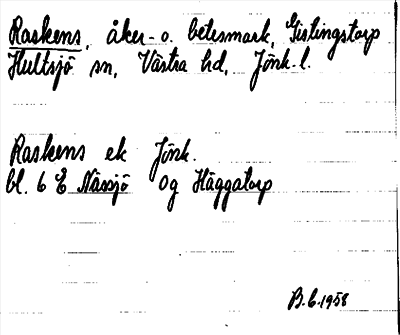 Raskens, åker- o. betesmark, Gislingstorp
Hultsjö sn, Västra hd, Jönk. l.
Raskens ek Jönk.
bl. 6 E Nässjö Og Häggatorp
B.E. 1958